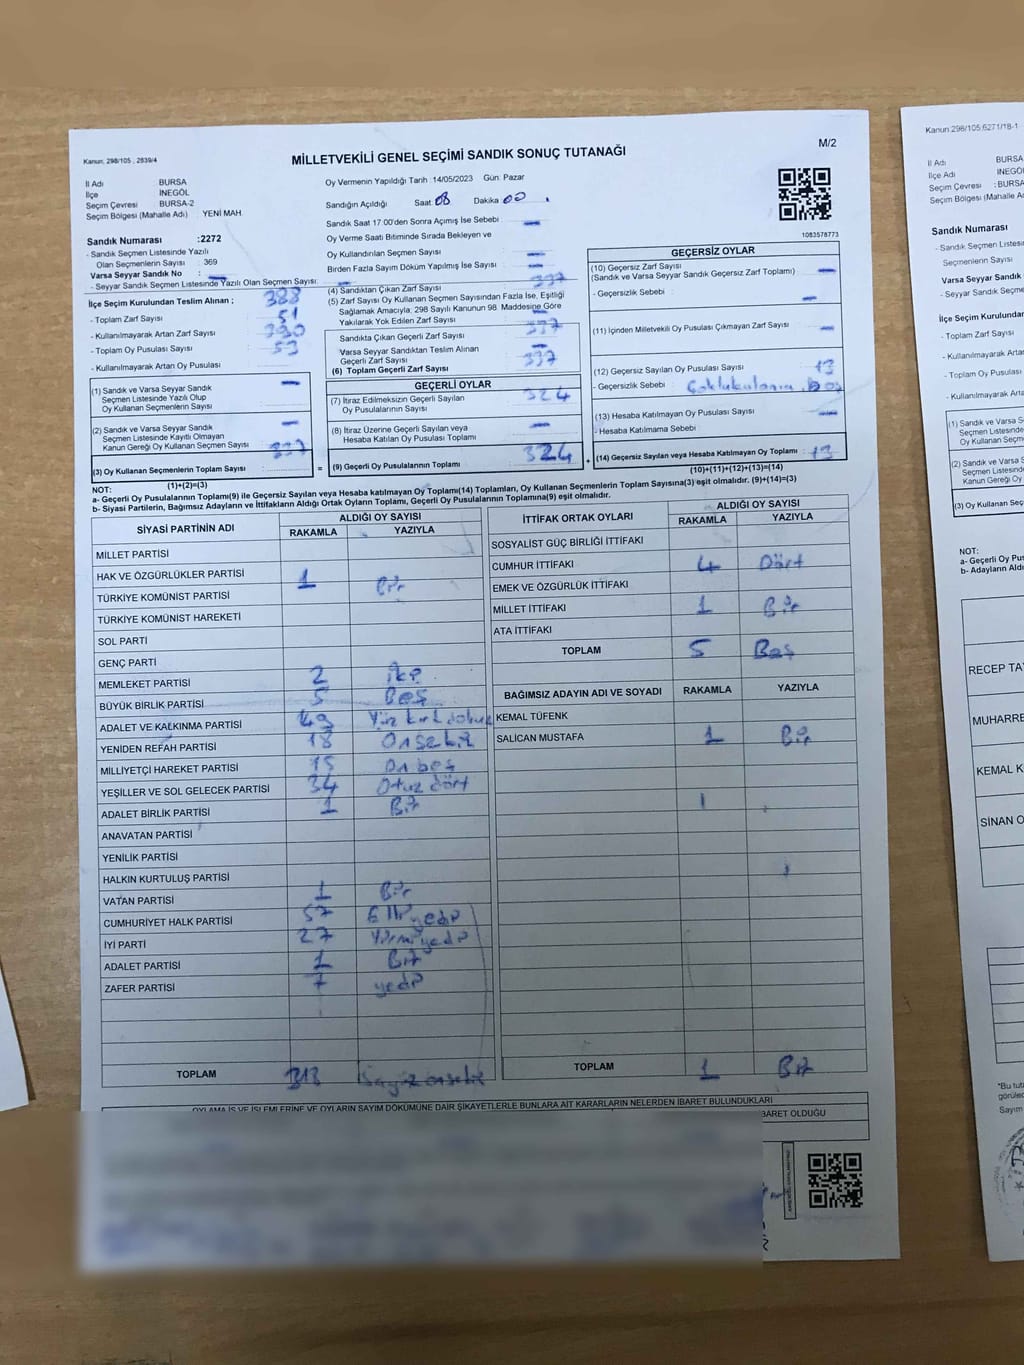 Kanun, 298/105 , 2839/4
M/2
MİLLETVEKİLİ GENEL SEÇİMİ SANDIK SONUÇ TUTANAĞI
İl Adı BURSA
İlçe İNEGÖL
Seçim Çevresi BURSA-2
Seçim Bölgesi (Mahalle Adı) : YENİ MAH.
Sandık Numarası :2272
- Sandık Seçmen Listesinde Yazılı
Olan Seçmenlerin Sayısı : 369
Varsa Seyyar Sandık No : -
- Seyyar Sandık Seçmen Listesinde Yazılı Olan Seçmen Sayısı:
İlçe Seçim Kurulundan Teslim Alınan ; 388
- Toplam Zarf Sayısı 51
- Kullanılmayarak Artan Zarf Sayısı 390
- Toplam Oy Pusulası Sayısı 53
- Kullanılmayarak Artan Oy Pusulası
(1) Sandık ve Varsa Seyyar Sandık -
Seçmen Listesinde Yazılı Olup
Oy Kullanan Seçmenlerin Sayısı
(2) Sandık ve Varsa Seyyar Sandık -
Seçmen Listesinde Kayıtlı Olmayan
Kanun Gereği Oy Kullanan Seçmen Sayısı 337
(3) Oy Kullanan Seçmenlerin Toplam Sayısı :
(1)+(2)=(3)
Oy Vermenin Yapıldığı Tarih :14/05/2023 Gün: Pazar
Sandığın Açıldığı Saat: 08 Dakika 00
Sandık Saat 17:00'den Sonra Açımış İse Sebebi : -
Oy Verme Saati Bitiminde Sırada Bekleyen ve
Oy Kullandırılan Seçmen Sayısı -
Birden Fazla Sayım Döküm Yapılmış İse Sayısı -
(4) Sandıktan Çıkan Zarf Sayısı 337
(5) Zarf Sayısı Oy Kullanan Seçmen Sayısından Fazla İse, Eşitliği
Sağlamak Amacıyla; 298 Sayılı Kanunun 98. Maddesine Göre
Yakılarak Yok Edilen Zarf Sayısı -
Sandıkta Çıkan Geçerli Zarf Sayısı 337
Varsa Seyyar Sandıktan Teslim Alınan
Geçerli Zarf Sayısı -
(6) Toplam Geçerli Zarf Sayısı 337
GEÇERLİ OYLAR
(7) İtiraz Edilmeksizin Geçerli Sayılan
Oy Pusulalarının Sayısı 324
(8) İtiraz Üzerine Geçerli Sayılan veya
Hesaba Katılan Oy Pusulası Toplamı -
= (9) Geçerli Oy Pusulalarının Toplamı 324
1083578773
GEÇERSİZ OYLAR
(10) Geçersiz Zarf Sayısı
(Sandık ve Varsa Seyyar Sandık Geçersiz Zarf Toplamı) -
- Geçersizlik Sebebi : -
(11) İçinden Milletvekili Oy Pusulası Çıkmayan Zarf Sayısı -
(12) Geçersiz Sayılan Oy Pusulası Sayısı 13
- Geçersizlik Sebebi :
(13) Hesaba Katılmayan Oy Pusulası Sayısı -
- Hesaba Katılmama Sebebi
+ (14) Geçersiz Sayılan veya Hesaba Katılmayan Oy Toplamı : 13
(10)+(11)+(12)+(13)=(14)
NOT:
a- Geçerli Oy Pusulalarının Toplamı(9) ile Geçersiz Sayılan veya Hesaba katılmayan Oy Toplamı(14) Toplamları, Oy Kullanan Seçmenlerin Toplam Sayısına(3) eşit olmalıdır. (9)+(14)=(3)
b- Siyasi Partilerin, Bağımsız Adayların ve İttifakların Aldığı Ortak Oyların Toplamı, Geçerli Oy Pusulalarının Toplamına(9) eşit olmalıdır.
SİYASİ PARTİNİN ADI ALDIĞI OY SAYISI
RAKAMLA YAZIYLA
MİLLET PARTİSİ
HAK VE ÖZGÜRLÜKLER PARTİSİ 1 Bir
TÜRKİYE KOMÜNİST PARTİSİ
TÜRKİYE KOMÜNİST HAREKETİ
SOL PARTİ
GENÇ PARTİ
MEMLEKET PARTİSİ 2 İki
BÜYÜK BİRLİK PARTİSİ 5 Beş
ADALET VE KALKINMA PARTİSİ 149 Yüz kırk dokuz
YENİDEN REFAH PARTİSİ 18 Onsekiz
MİLLİYETÇİ HAREKET PARTİSİ 15 On beş
YEŞİLLER VE SOL GELECEK PARTİSİ 34 Otuz dört
ADALET BİRLİK PARTİSİ 1 Bir
ANAVATAN PARTİSİ
YENİLİK PARTİSİ
HALKIN KURTULUŞ PARTİSİ
VATAN PARTİSİ 1 Bir
CUMHURİYET HALK PARTİSİ 57 Elli yedi
İYİ PARTİ 27 Yirmi yedi
ADALET PARTİSİ 1 Bir
ZAFER PARTİSİ 7 yedi
TOPLAM 318
İTTİFAK ORTAK OYLARI ALDIĞI OY SAYISI
RAKAMLA YAZIYLA
SOSYALİST GÜÇ BİRLİĞİ İTTİFAKI
CUMHUR İTTİFAKI 4 Dört
EMEK VE ÖZGÜRLÜK İTTİFAKI
MİLLET İTTİFAKI 1 Bir
ATA İTTİFAKI
TOPLAM 5 Beş
BAĞIMSIZ ADAYIN ADI VE SOYADI RAKAMLA YAZIYLA
KEMAL TÜFENK
SALİCAN MUSTAFA 1 Bir
TOPLAM 1 Bir
OYLAMA İŞ VE İŞLEMLERİNE VE OYLARIN SAYIM DÖKÜMÜNE DAİR ŞİKAYETLERLE BUNLARA AİT KARARLARIN NELERDEN İBARET BULUNDUKLARI
BARET OLDUĞU
Kanun 298/105,6271/18-1
İl Adı BURSA
İlçe Adı İNEGÖ
Seçim Çevresi :BURSA
Seçim Bölgesi (Mahalle A
Sandık Numarası
- Sandık Seçmen Listesi
Olan Seçmenlerin Sayısı
Varsa Seyyar Sandık N
- Seyyar Sandık Seçmen
İlçe Seçim Kurulundan
- Toplam Zarf Sayısı
- Kullanılmayarak Artan
- Toplam Oy Pusulası
- Kullanılmayarak Artan
(1) Sandık ve Varsa S
Seçmen Listesinde
Oy Kullanan Seçme
(2) Sandık ve Varsa S
Seçmen Listesinde
Kanun Gereği Oy
(3) Oy Kullanan Seç
NOT:
a- Geçerli Oy Pusula
b- Adayların Aldı
RECEP TA
MUHARRE
KEMAL K
SİNAN O
"Bu tuta
görülec
Sayım